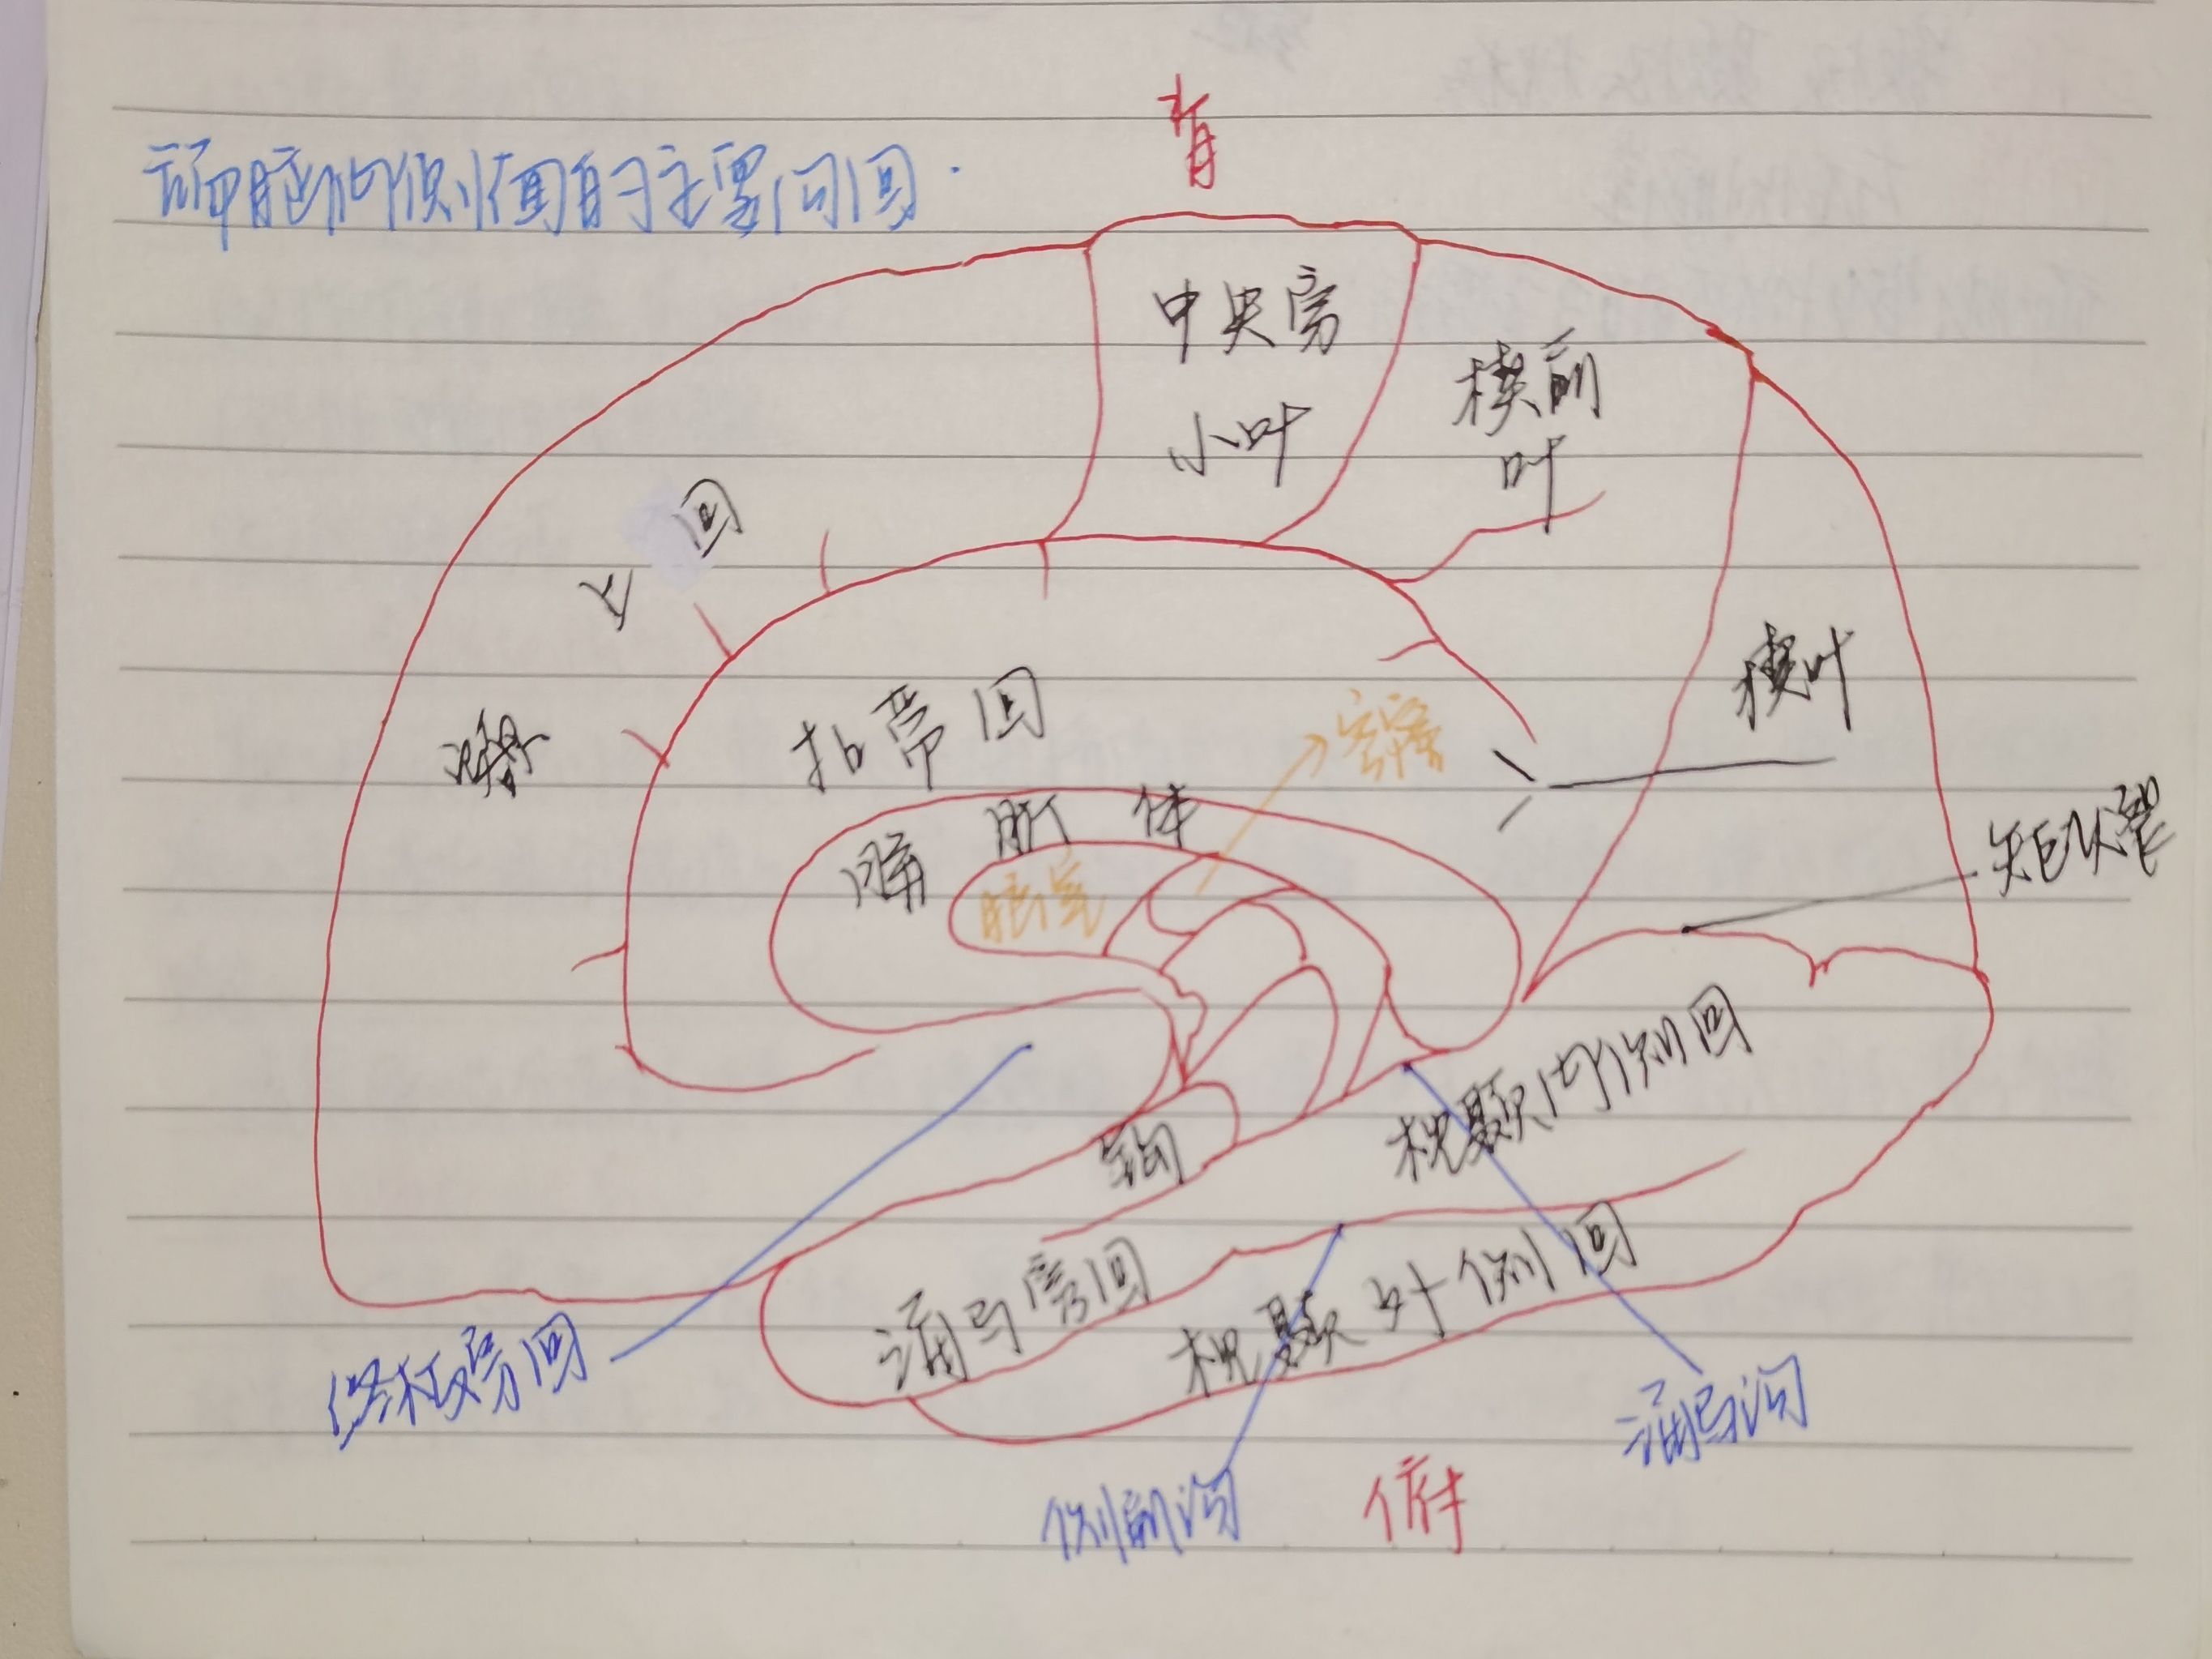 背
端脑内侧面的主要沟回.
中央旁
小叶
楔前
叶
回
上
额
楔叶
扣带回
穹窿
胼胝体
距状裂
钩
枕颞内侧回
海马旁回
枕颞外侧回
终板旁回
海马沟
侧副沟